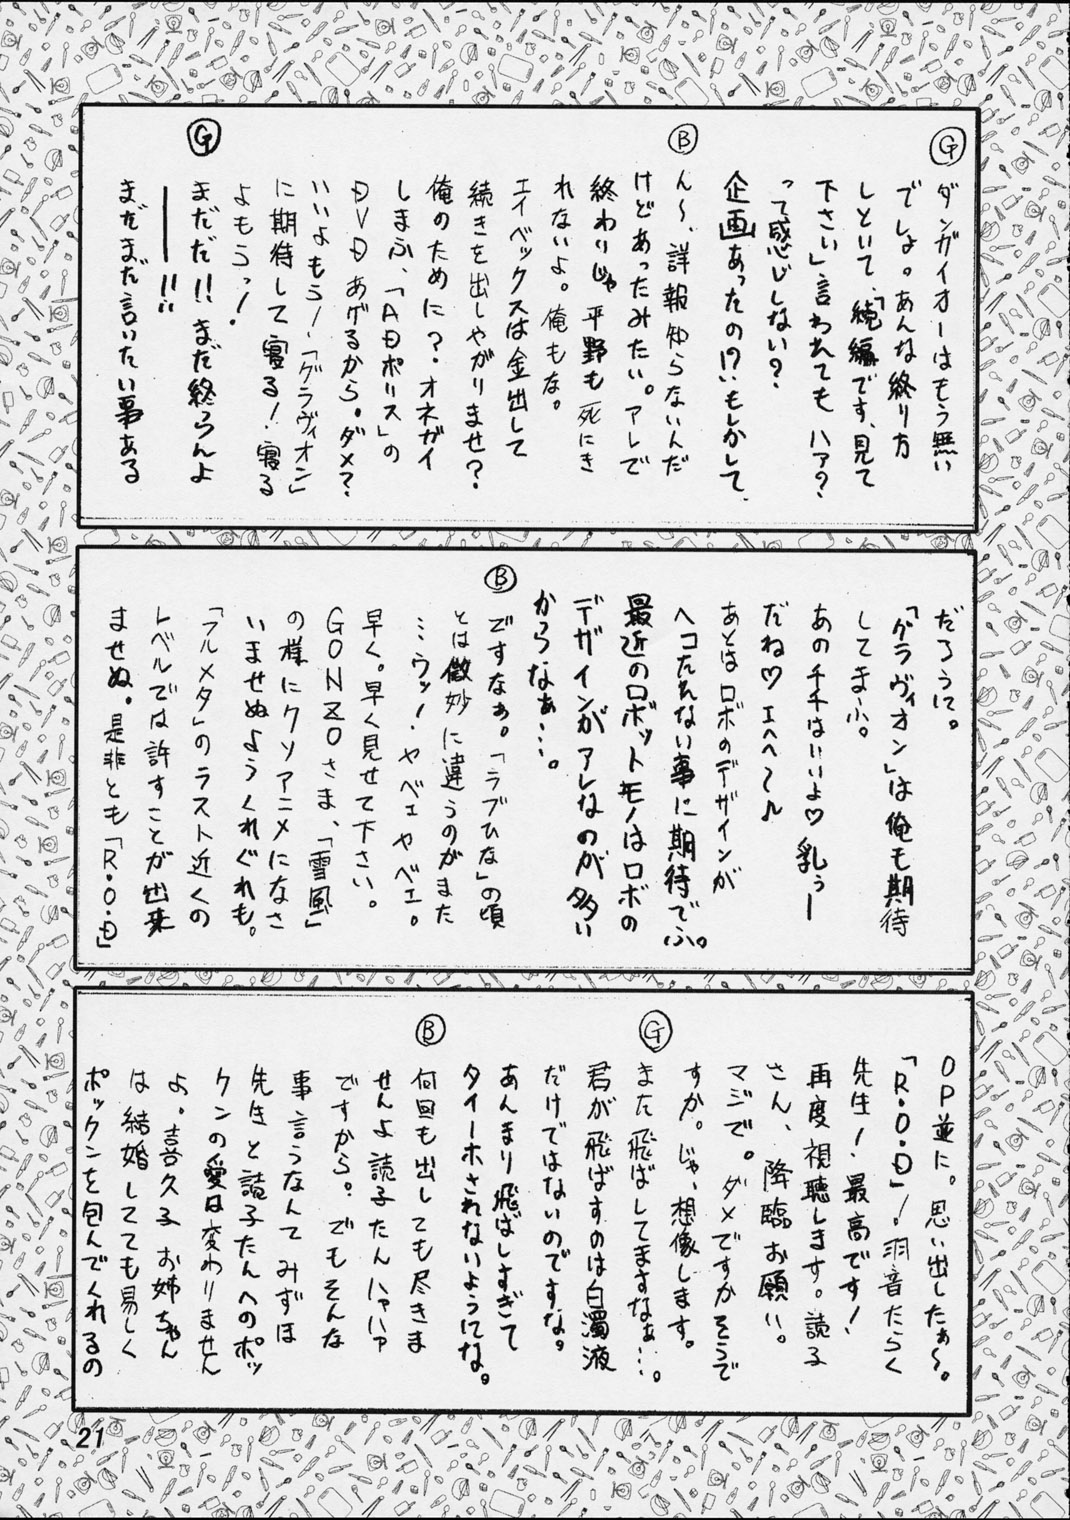 Ⓖ ダンガイオーはもう無い
でしょ。あんな終り方
しといて、「続編です、見て
下さい」言われても ハァ?
って感じしない?
企画あったの!?もしかして、
Ⓑ ん〜、詳報知らないんだ
けどあったみたい。アレで
終わりじゃ 平野も死にき
れないよ。俺もな。
エイベックスは金出して
続きを出しやがりませ?
俺のために?オネガイ
しまふ、「ADポリス」の
DVDあげるから。ダメ?
いいよもう!「グラヴィオン」
に期待して寝る!寝る
よもうっ!
Ⓖ まだだ!!まだ終らんよ
――!!
まだまだ言いたい事ある
だろうに。
「グラヴィオン」は俺も期待
してまふ。
あの千千はいいよ♡乳ぅー
だね♡エヘヘ〜♪
あとはロボのデザインが
ヘコたれない事に期待でふ。
最近のロボットモノはロボの
デザインがアレなのが多い
からなぁ…。
Ⓑ ですなぁ。「ラブひな」の頃
とは微妙に違うのがまた
…ウッ!ヤベェヤベェ。
早く。早く見せて下さい。
GONZOさま、「雪風」
の様にクソアニメになさ
いませぬようくれぐれも。
「フルメタ」のラスト近くの
レベルでは許すことが出来
ませぬ。是非とも「R.O.D」
OP並に。思い出したぁ〜。
「R.O.D」!羽音たらく
先生!最高です!
再度視聴します。読子
さん、降臨お願い。
マジで。ダメですかそうで
すか。じゃ、想像します。
Ⓖ また飛ばしてますなぁ…。
君が飛ばすのは白濁液
だけではないのですな。
あんまり飛ばしすぎて
タイーホされないようにな。
Ⓑ 何回も出しても尽きま
せんよ読子たんハァハァ
ですから?でもそんな
事言うなんてみずほ
先生と読子たんへのポッ
クンの愛は変わりません
よ。喜久子お姉ちゃん
は結婚してても易しく
ポックンを包んでくれるの
21